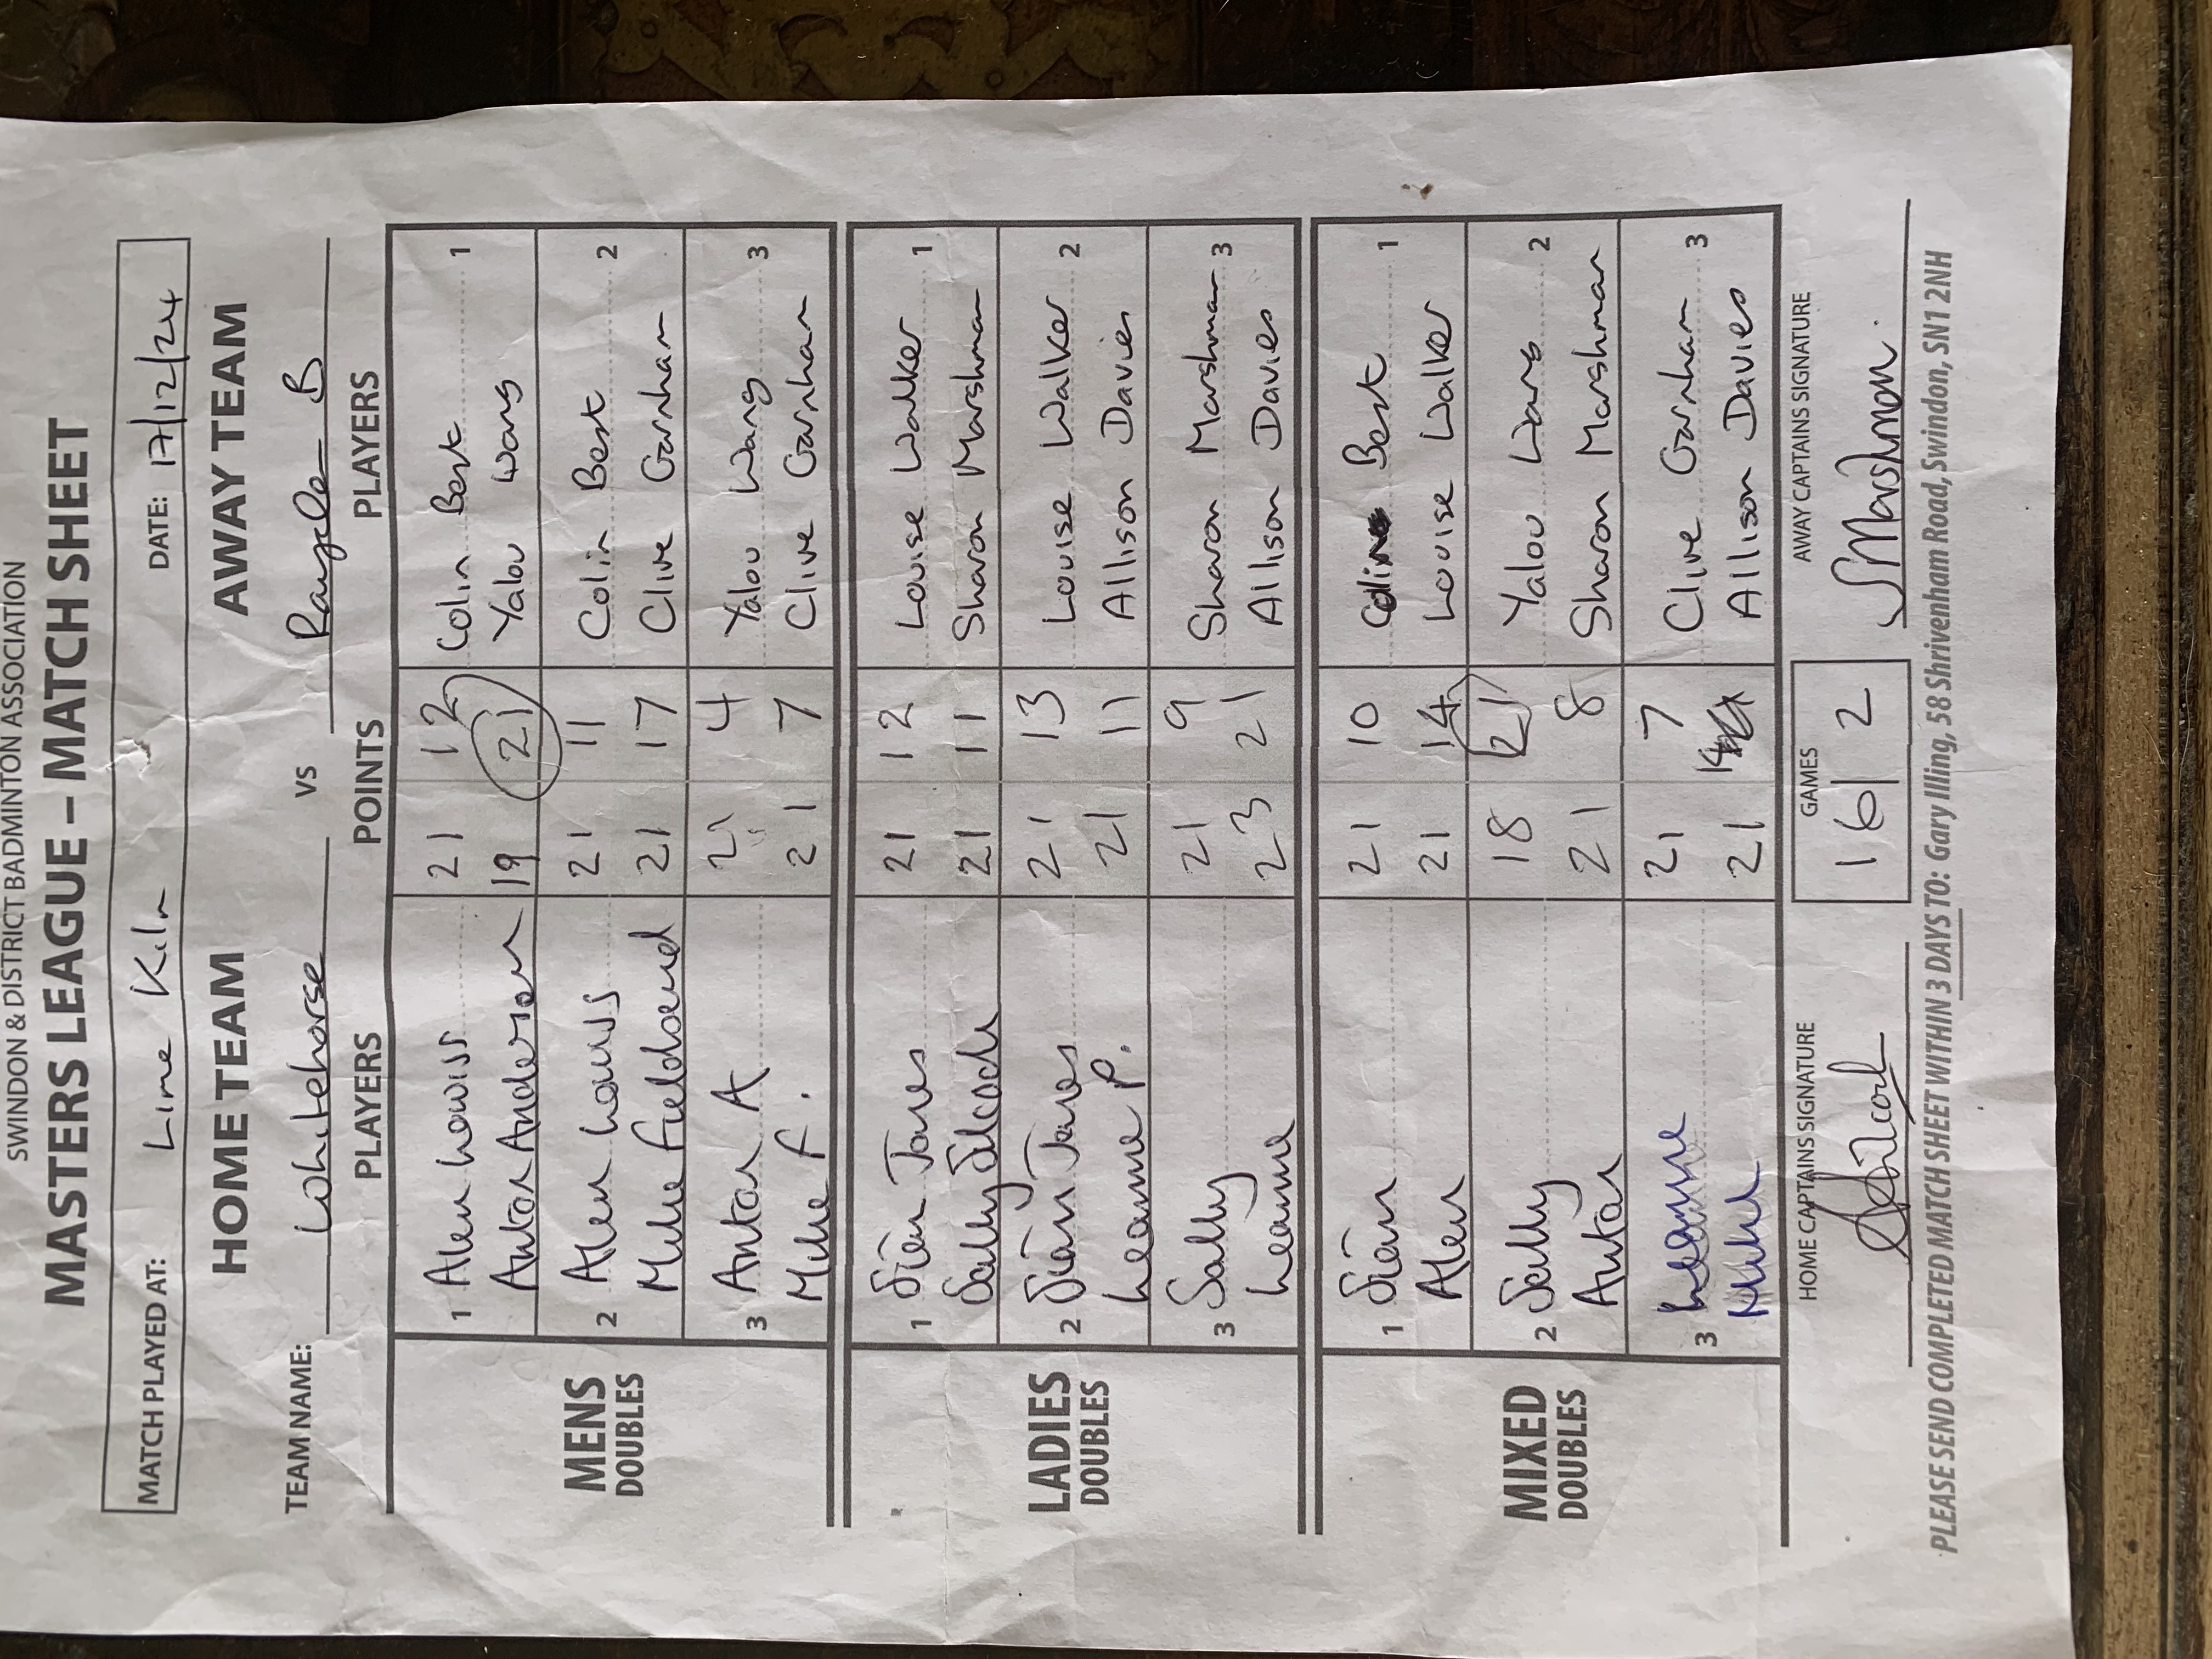 SWINDON & DISTRICT BADMINTON ASSOCIATION
MASTERS LEAGUE – MATCH SHEET
MATCH PLAYED AT: Lime Kiln DATE: 17/12/24
HOME TEAM AWAY TEAM
TEAM NAME: Whitehorse VS B
PLAYERS POINTS PLAYERS
MENS DOUBLES
1 Alen 21 12 Colin Best 1
Anton Anderson 19 21 Yalou Wang
2 Alen 21 11 Colin Best 2
Mike 21 17 Clive Garnham
3 Anton A 21 4 Yalou Wang 3
Mike F. 21 7 Clive Garnham
LADIES DOUBLES
1 Siân Jones 21 12 Louise Walker 1
Sally Silcock 21 11 Sharon Marshman
2 Siân Jones 21 13 Louise Walker 2
Leanne P. 21 11 Allison Davies
3 Sally 21 9 Sharon Marshman 3
Leanne 23 21 Allison Davies
MIXED DOUBLES
1 Siân 21 10 Colin Best 1
Alen 21 14 Louise Walker
2 Sally 18 21 Yalou Wang 2
Anton 21 8 Sharon Marshman
3 Leanne 21 7 Clive Garnham 3
Mike 21 14 Allison Davies
HOME CAPTAINS SIGNATURE GAMES AWAY CAPTAINS SIGNATURE
SSilcock 16 2 SMarshman.
PLEASE SEND COMPLETED MATCH SHEET WITHIN 3 DAYS TO: Gary Illing, 58 Shrivenham Road, Swindon, SN1 2NH